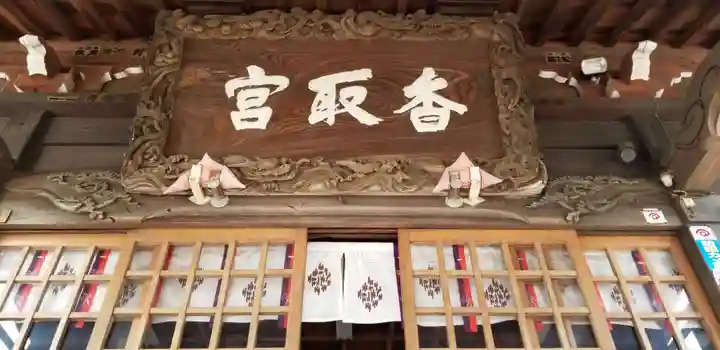 香取宮